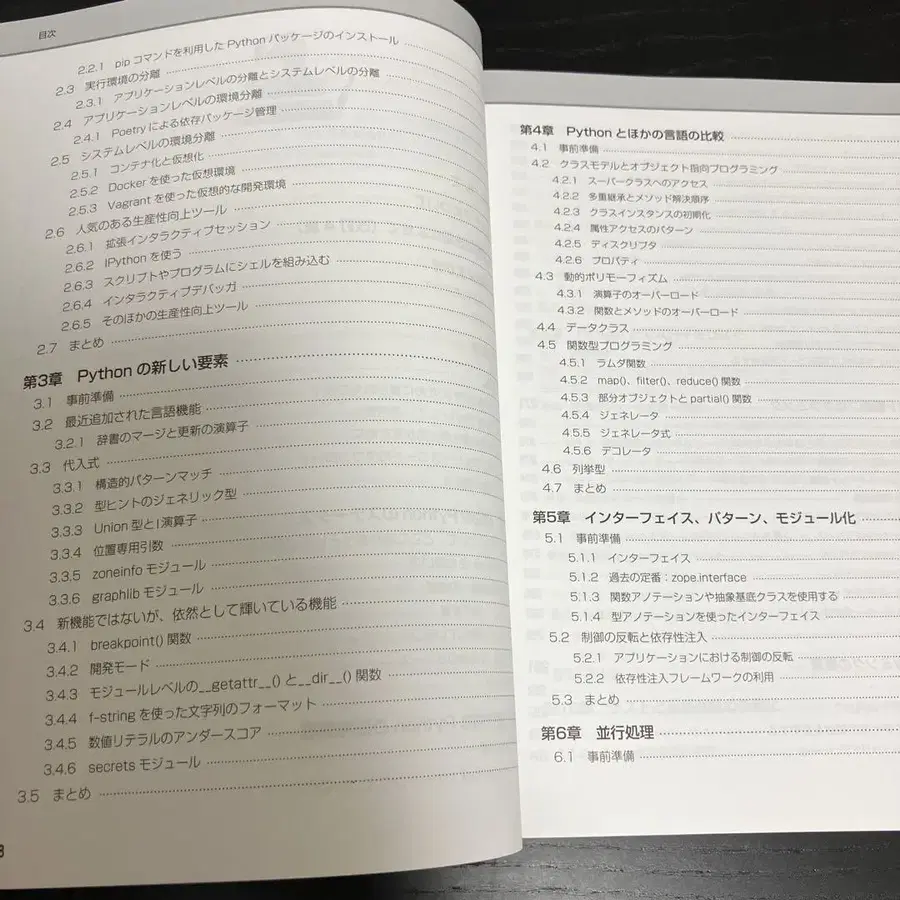 目次
2.2.1 pip コマンドを利用した Python パッケージのインストール
2.3 実行環境の分離
2.3.1 アプリケーションレベルの分離とシステムレベルの分離
2.4 アプリケーションレベルの環境分離
2.4.1 Poetry による依存パッケージ管理
2.5 システムレベルの環境分離
2.5.1 コンテナ化と仮想化
2.5.2 Docker を使った仮想環境
2.5.3 Vagrant を使った仮想的な開発環境
2.6 人気のある生産性向上ツール
2.6.1 拡張インタラクティブセッション
2.6.2 IPython を使う
2.6.3 スクリプトやプログラムにシェルを組み込む
2.6.4 インタラクティブデバッガ
2.6.5 そのほかの生産性向上ツール
2.7 まとめ
第3章 Python の新しい要素
3.1 事前準備
3.2 最近追加された言語機能
3.2.1 辞書のマージと更新の演算子
3.3 代入式
3.3.1 構造的パターンマッチ
3.3.2 型ヒントのジェネリック型
3.3.3 Union 型と | 演算子
3.3.4 位置専用引数
3.3.5 zoneinfo モジュール
3.3.6 graphlib モジュール
3.4 新機能ではないが、依然として輝いている機能
3.4.1 breakpoint() 関数
3.4.2 開発モード
3.4.3 モジュールレベルの__getattr__() と__dir__() 関数
3.4.4 f-string を使った文字列のフォーマット
3.4.5 数値リテラルのアンダースコア
3.4.6 secrets モジュール
3.5 まとめ
第4章 Python とほかの言語の比較
4.1 事前準備
4.2 クラスモデルとオブジェクト指向プログラミング
4.2.1 スーパークラスへのアクセス
4.2.2 多重継承とメソッド解決順序
4.2.3 クラスインスタンスの初期化
4.2.4 属性アクセスのパターン
4.2.5 ディスクリプタ
4.2.6 プロパティ
4.3 動的ポリモーフィズム
4.3.1 演算子のオーバーロード
4.3.2 関数とメソッドのオーバーロード
4.4 データクラス
4.5 関数型プログラミング
4.5.1 ラムダ関数
4.5.2 map()、filter()、reduce() 関数
4.5.3 部分オブジェクトと partial() 関数
4.5.4 ジェネレータ
4.5.5 ジェネレータ式
4.5.6 デコレータ
4.6 列挙型
4.7 まとめ
第5章 インターフェイス、パターン、モジュール化
5.1 事前準備
5.1.1 インターフェイス
5.1.2 過去の定番:zope.interface
5.1.3 関数アノテーションや抽象基底クラスを使用する
5.1.4 型アノテーションを使ったインターフェイス
5.2 制御の反転と依存性注入
5.2.1 アプリケーションにおける制御の反転
5.2.2 依存性注入フレームワークの利用
5.3 まとめ
第6章 並行処理
6.1 事前準備